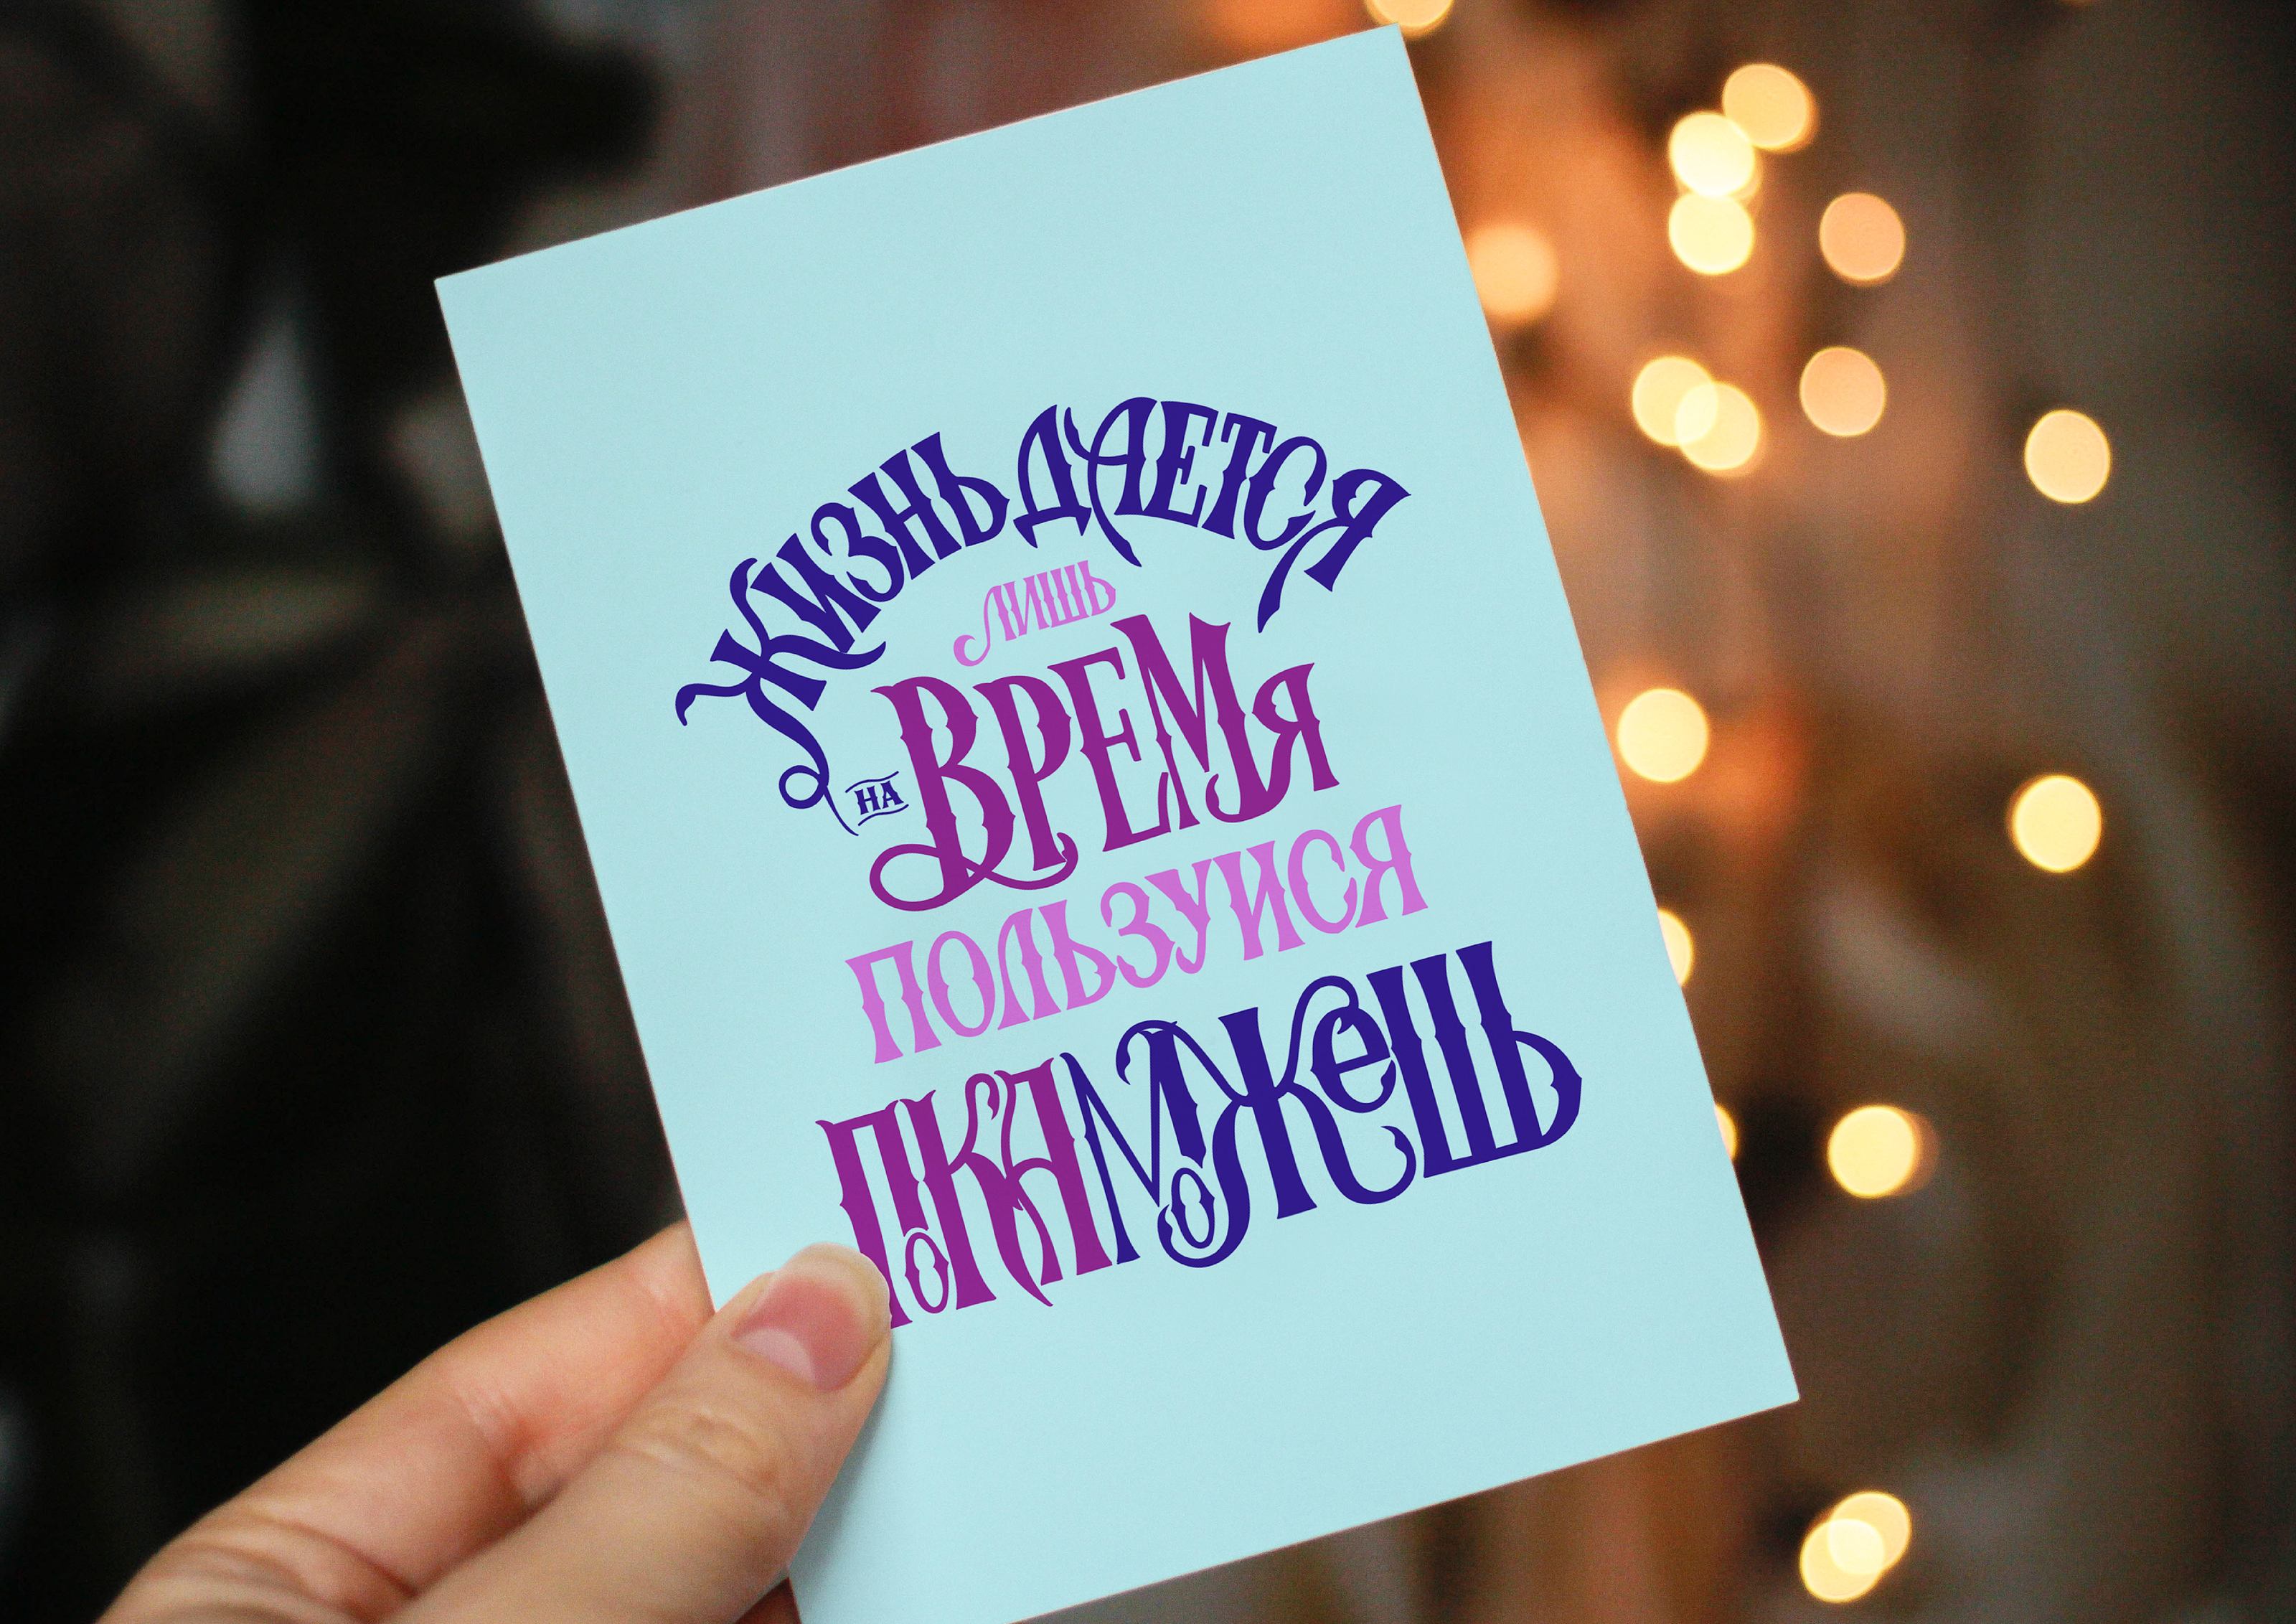 ЖИЗНЬ ДАЕТСЯ
ЛИШЬ
НА ВРЕМЯ
ПОЛЬЗУИСЯ
ПОКА МОЖЕШЬ